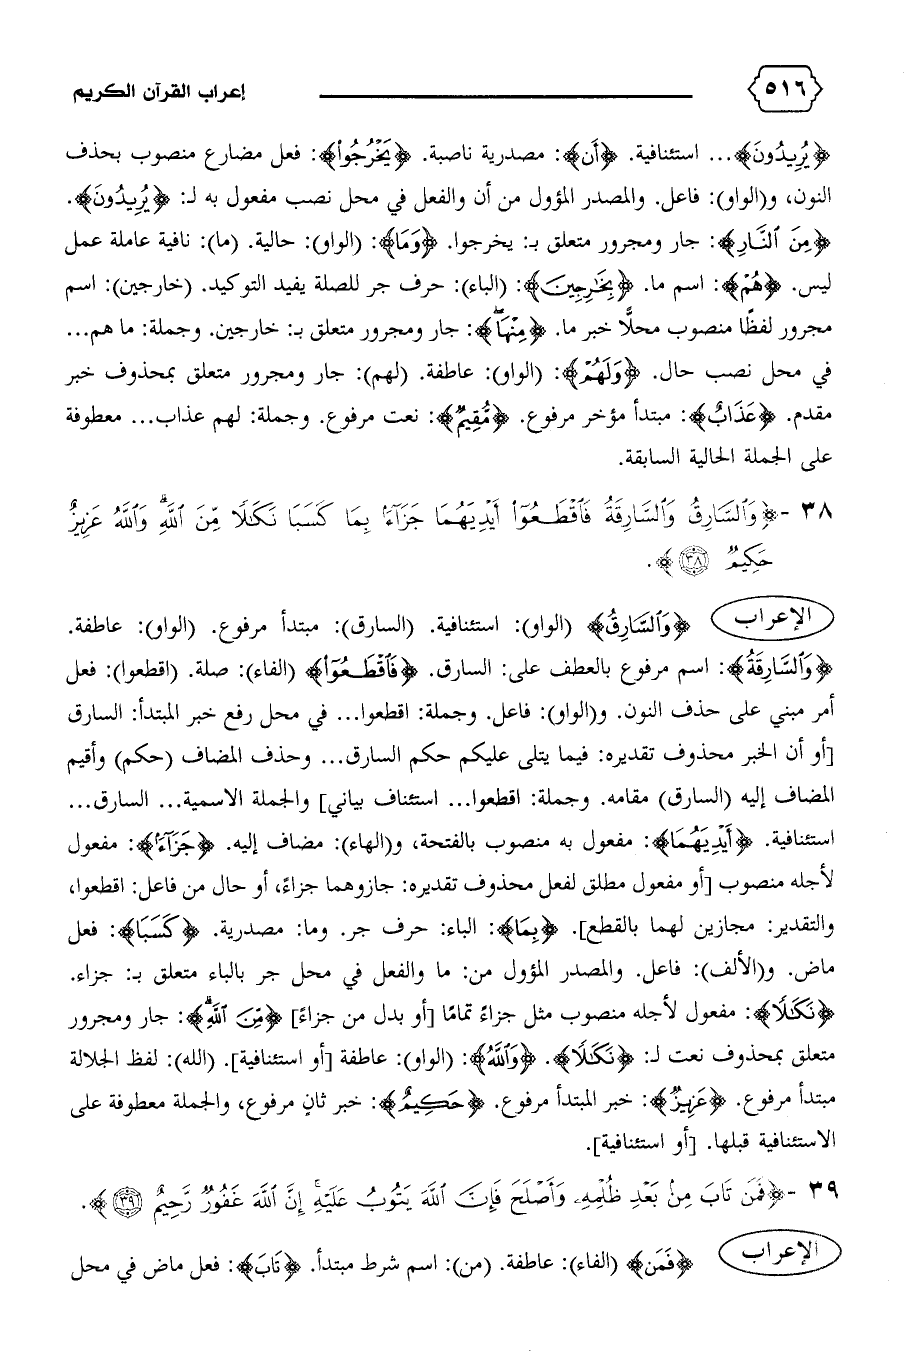 ٥١٦ إعراب القرآن الكريم
﴿يُرِيدُونَ﴾... استئنافية. ﴿أَن﴾: مصدرية ناصبة. ﴿يَخْرُجُوا۟﴾: فعل مضارع منصوب بحذف
النون، و(الواو): فاعل. والمصدر المؤول من أن والفعل في محل نصب مفعول به لـ: ﴿يُرِيدُونَ﴾.
﴿مِنَ ٱلنَّارِ﴾: جار ومجرور متعلق بـ: يخرجوا. ﴿وَمَا﴾: (الواو): حالية. (ما): نافية عاملة عمل
ليس. ﴿هُمْ﴾: اسم ما. ﴿بِخَٰرِجِينَ﴾: (الباء): حرف جر للصلة يفيد التوكيد. (خارجين): اسم
مجرور لفظًا منصوب محلًّا خبر ما. ﴿مِنْهَاۖ﴾: جار ومجرور متعلق بـ: خارجين. وجملة: ما هم...
في محل نصب حال. ﴿وَلَهُمْ﴾: (الواو): عاطفة. (لهم): جار ومجرور متعلق بمحذوف خبر
مقدم. ﴿عَذَابٌ﴾: مبتدأ مؤخر مرفوع. ﴿مُّقِيمٌ﴾: نعت مرفوع. وجملة: لهم عذاب... معطوفة
على الجملة الحالية السابقة.
٣٨ - ﴿وَٱلسَّارِقُ وَٱلسَّارِقَةُ فَٱقْطَعُوٓا۟ أَيْدِيَهُمَا جَزَآءًۢ بِمَا كَسَبَا نَكَٰلًا مِّنَ ٱللَّهِۗ وَٱللَّهُ عَزِيزٌ
حَكِيمٌ ٣٨﴾.
الإعراب ﴿وَٱلسَّارِقُ﴾ (الواو): استئنافية. (السارق): مبتدأ مرفوع. (الواو): عاطفة.
﴿وَٱلسَّارِقَةُ﴾: اسم مرفوع بالعطف على: السارق. ﴿فَٱقْطَعُوٓا۟﴾ (الفاء): صلة. (اقطعوا): فعل
أمر مبني على حذف النون. و(الواو): فاعل. وجملة: اقطعوا... في محل رفع خبر المبتدأ: السارق
[أو أن الخبر محذوف تقديره: فيما يتلى عليكم حكم السارق... وحذف المضاف (حكم) وأقيم
المضاف إليه (السارق) مقامه. وجملة: اقطعوا... استئناف بياني] والجملة الاسمية... السارق...
استئنافية. ﴿أَيْدِيَهُمَا﴾: مفعول به منصوب بالفتحة، و(الهاء): مضاف إليه. ﴿جَزَآءًۢ﴾: مفعول
لأجله منصوب [أو مفعول مطلق لفعل محذوف تقديره: جازوهما جزاءً، أو حال من فاعل: اقطعوا،
والتقدير: مجازين لهما بالقطع]. ﴿بِمَا﴾: الباء: حرف جر. وما: مصدرية. ﴿كَسَبَا﴾: فعل
ماض. و(الألف): فاعل. والمصدر المؤول من: ما والفعل في محل جر بالباء متعلق بـ: جزاء.
﴿نَكَٰلًا﴾: مفعول لأجله منصوب مثل جزاءً تمامًا [أو بدل من جزاءً] ﴿مِّنَ ٱللَّهِۗ﴾: جار ومجرور
متعلق بمحذوف نعت لـ: ﴿نَكَٰلًا﴾. ﴿وَٱللَّهُ﴾: (الواو): عاطفة [أو استئنافية]. (الله): لفظ الجلالة
مبتدأ مرفوع. ﴿عَزِيزٌ﴾: خبر المبتدأ مرفوع. ﴿حَكِيمٌ﴾: خبر ثانٍ مرفوع، والجملة معطوفة على
الاستئنافية قبلها. [أو استئنافية].
٣٩ - ﴿فَمَن تَابَ مِنۢ بَعْدِ ظُلْمِهِۦ وَأَصْلَحَ فَإِنَّ ٱللَّهَ يَتُوبُ عَلَيْهِۚ إِنَّ ٱللَّهَ غَفُورٌ رَّحِيمٌ ٣٩﴾.
الإعراب ﴿فَمَن﴾ (الفاء): عاطفة. (من): اسم شرط مبتدأ. ﴿تَابَ﴾: فعل ماض في محل